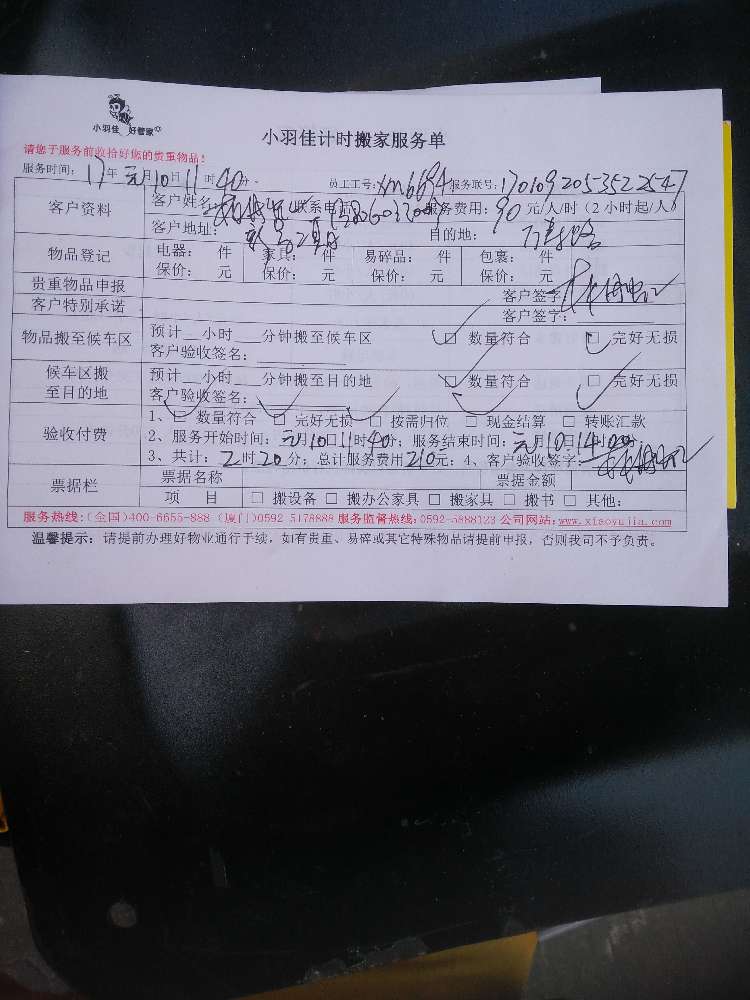 小羽佳 好管家
小羽佳计时搬家服务单
请您于服务前收拾好您的贵重物品!
服务时间: 17年 元月10日11时40分. 员工工号:xm6694 服务联号:170109205352 2547
客户资料 客户姓名: 联系电话: 服务费用: 90 元/人/时 (2小时起/人)
客户地址: 目的地: 万寿路
物品登记 电器: 件 家具: 件 易碎品: 件 包裹: 件
保价: 元 保价: 元 保价: 元 保价: 元
贵重物品申报 客户签字:
客户特别承诺 客户签字:
物品搬至候车区 预计__小时__分钟搬至候车区 □ 数量符合 □ 完好无损
客户验收签名:
候车区搬至目的地 预计__小时__分钟搬至目的地 □ 数量符合 □ 完好无损
客户验收签名:
验收付费 1、□ 数量符合 □ 完好无损 □ 按需归位 □ 现金结算 □ 转账汇款
2、服务开始时间: 元月10日11时40分; 服务结束时间: 元月10日14时00分;
3、共计: 2时20分; 总计服务费用210元; 4、客户验收签字:
票据栏 票据名称 票据金额
项 目 □ 搬设备 □ 搬办公家具 □ 搬家具 □ 搬书 □ 其他:
服务热线:(全国)400-6655-888 (厦门)0592 5178888 服务监督热线:0592-5888123 公司网站:www.xiaoyujia.com
温馨提示: 请提前办理好物业通行手续, 如有贵重、易碎或其它特殊物品请提前申报, 否则我司不予负责。